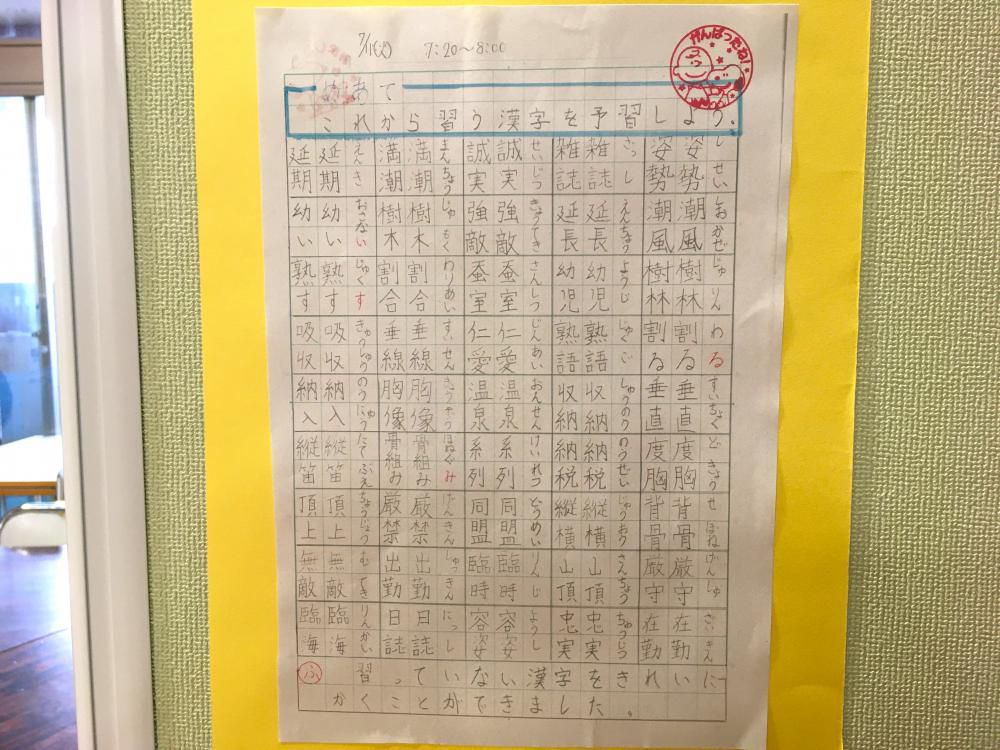 7/11(火) 7:20〜8:00
がんばったね!
めあて
これから習う漢字を予習しよう。
しせい しおかぜ じゅりん わる すいちょく どきょう せぼね げんしゅ ざいきん
姿勢 潮風 樹林 割る 垂直 度胸 背骨 厳守 在勤
姿勢 潮風 樹林 割る 垂直 度胸 背骨 厳守 在勤
ざっし えんちょう ようじ じゅくご しゅうのう のうぜい じゅうおう さんちょう ちゅうじつ
雑誌 延長 幼児 熟語 収納 納税 縦横 山頂 忠実
雑誌 延長 幼児 熟語 収納 納税 縦横 山頂 忠実
せいじつ きょうてき さんしつ じんあい おんせん けいれつ どうめい りんじ ようし
誠実 強敵 蚕室 仁愛 温泉 系列 同盟 臨時 容姿
誠実 強敵 蚕室 仁愛 温泉 系列 同盟 臨時 容姿
まんちょう じゅもく わりあい すいせん きょうぞう ほねぐみ げんきん しゅっきん にっし
満潮 樹木 割合 垂線 胸像 骨組み 厳禁 出勤 日誌
満潮 樹木 割合 垂線 胸像 骨組み 厳禁 出勤 日誌
えんき おさない じゅくす きゅうしゅう のうにゅう たてぶえ ちょうじょう むてき りんかい
延期 幼い 熟す 吸収 納入 縦笛 頂上 無敵 臨海
延期 幼い 熟す 吸収 納入 縦笛 頂上 無敵 臨海
ふ 習っていない漢字をきれいに
かくことができました。